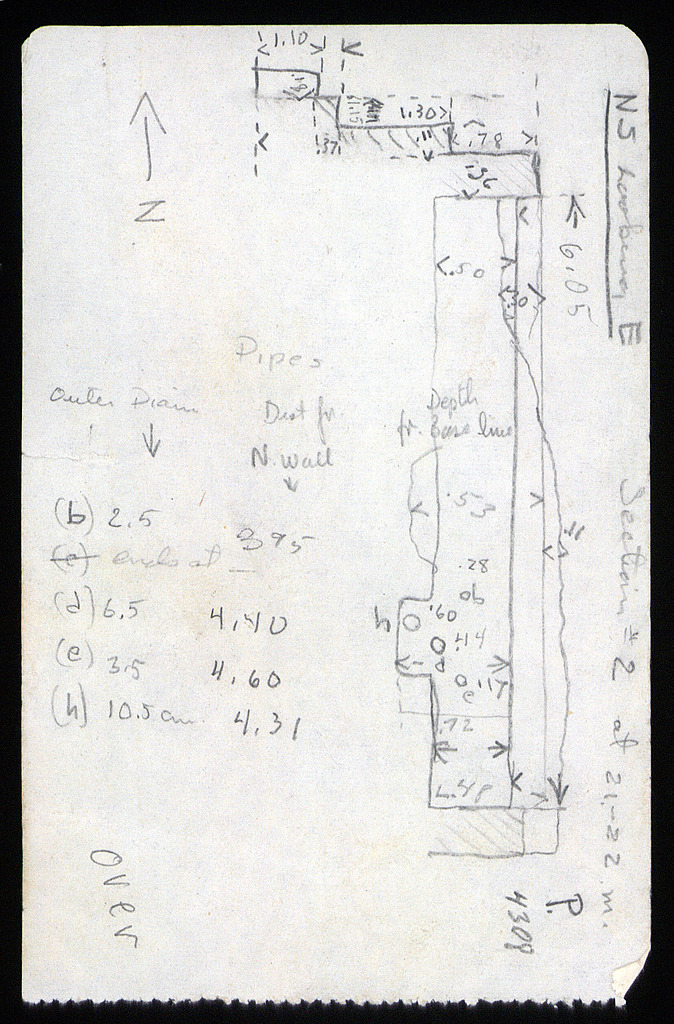 NS looking E
Section #2 at 21.-22 m.
P.
4309
6.05
N
1.10
1.30
.78
.37
.11
.36
.50
.30
Pipes
Outer Diam
Dist fr.
N. wall
Depth
fr. Base line
(b) 2.5 395
(c) ends at
(d) 6.5 4.40
(e) 3.5 4.60
(h) 10.5 cm. 4.31
.53
.28
b
.60
h
.44
d
.17
e
.72
.48
over